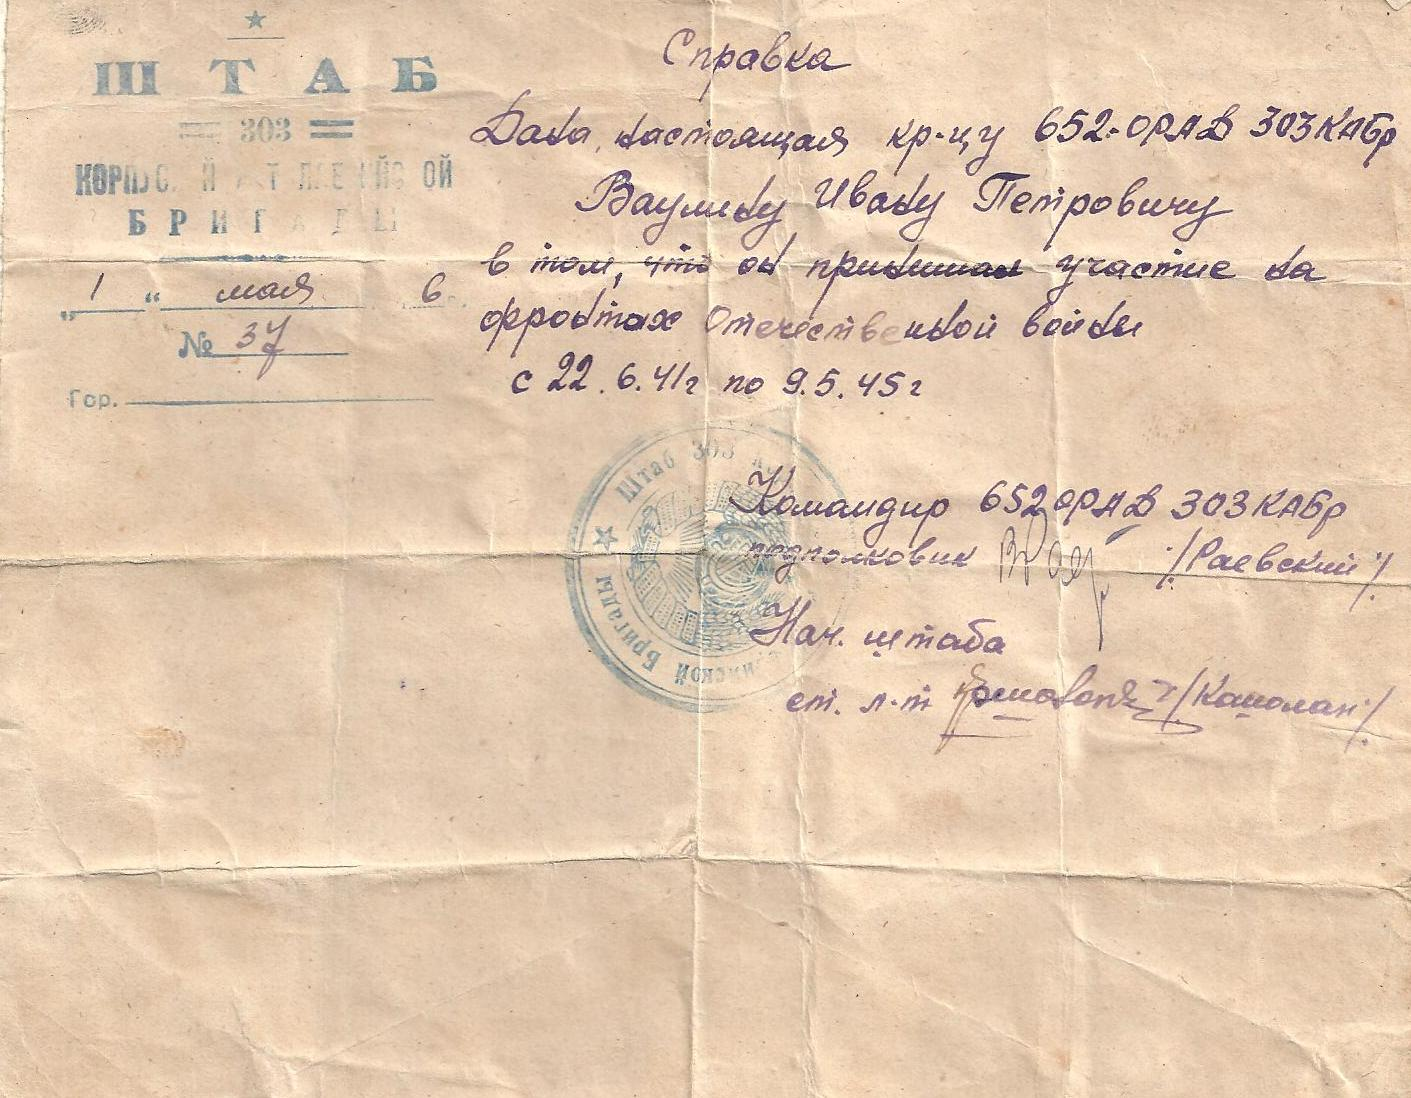 ШТАБ
303
КОРПУСНОЙ АРТИЛЛЕРИЙСКОЙ
БРИГАДЫ
„ 1 “ мая 6
№ 37
Гор.
Справка
Дана, настоящая кр-цу 652-ОРАД 303КАБр
Ваулину Ивану Петровичу
в том, что он принимал участие на
фронтах Отечественной войны
с 22.6.41г по 9.5.45г
Штаб 303
Бригады
Командир 652 ОРАД 303 КАБр
подполковник /Раевский/
Нач. штаба
ст. л-т /Каполан/